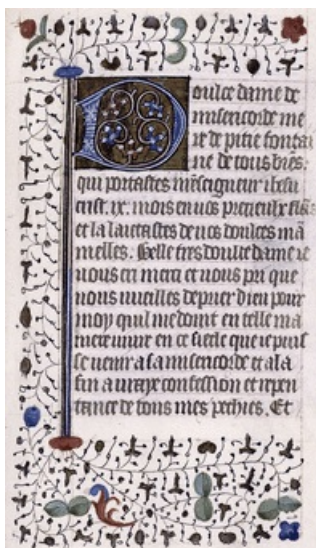 Doulce dame de
misericorde me
re de pitie fontai
ne de tous bie̅s.
qui portastes n̅r̅eigneur ihesu
crist .ix. mois en vos precieulx fla̅s
et la laictastes de vos doulces ma
melles. Belle tres doulce dame ie
vous cri merci et vous pri que
vous vueilles deprier dieu pour
moy quil me doint en telle ma
niere viure en ce siecle que ie puis
se venir a sa misericorde et a la
fin a vraye confession et repen
tance de tous mes pechies. Et